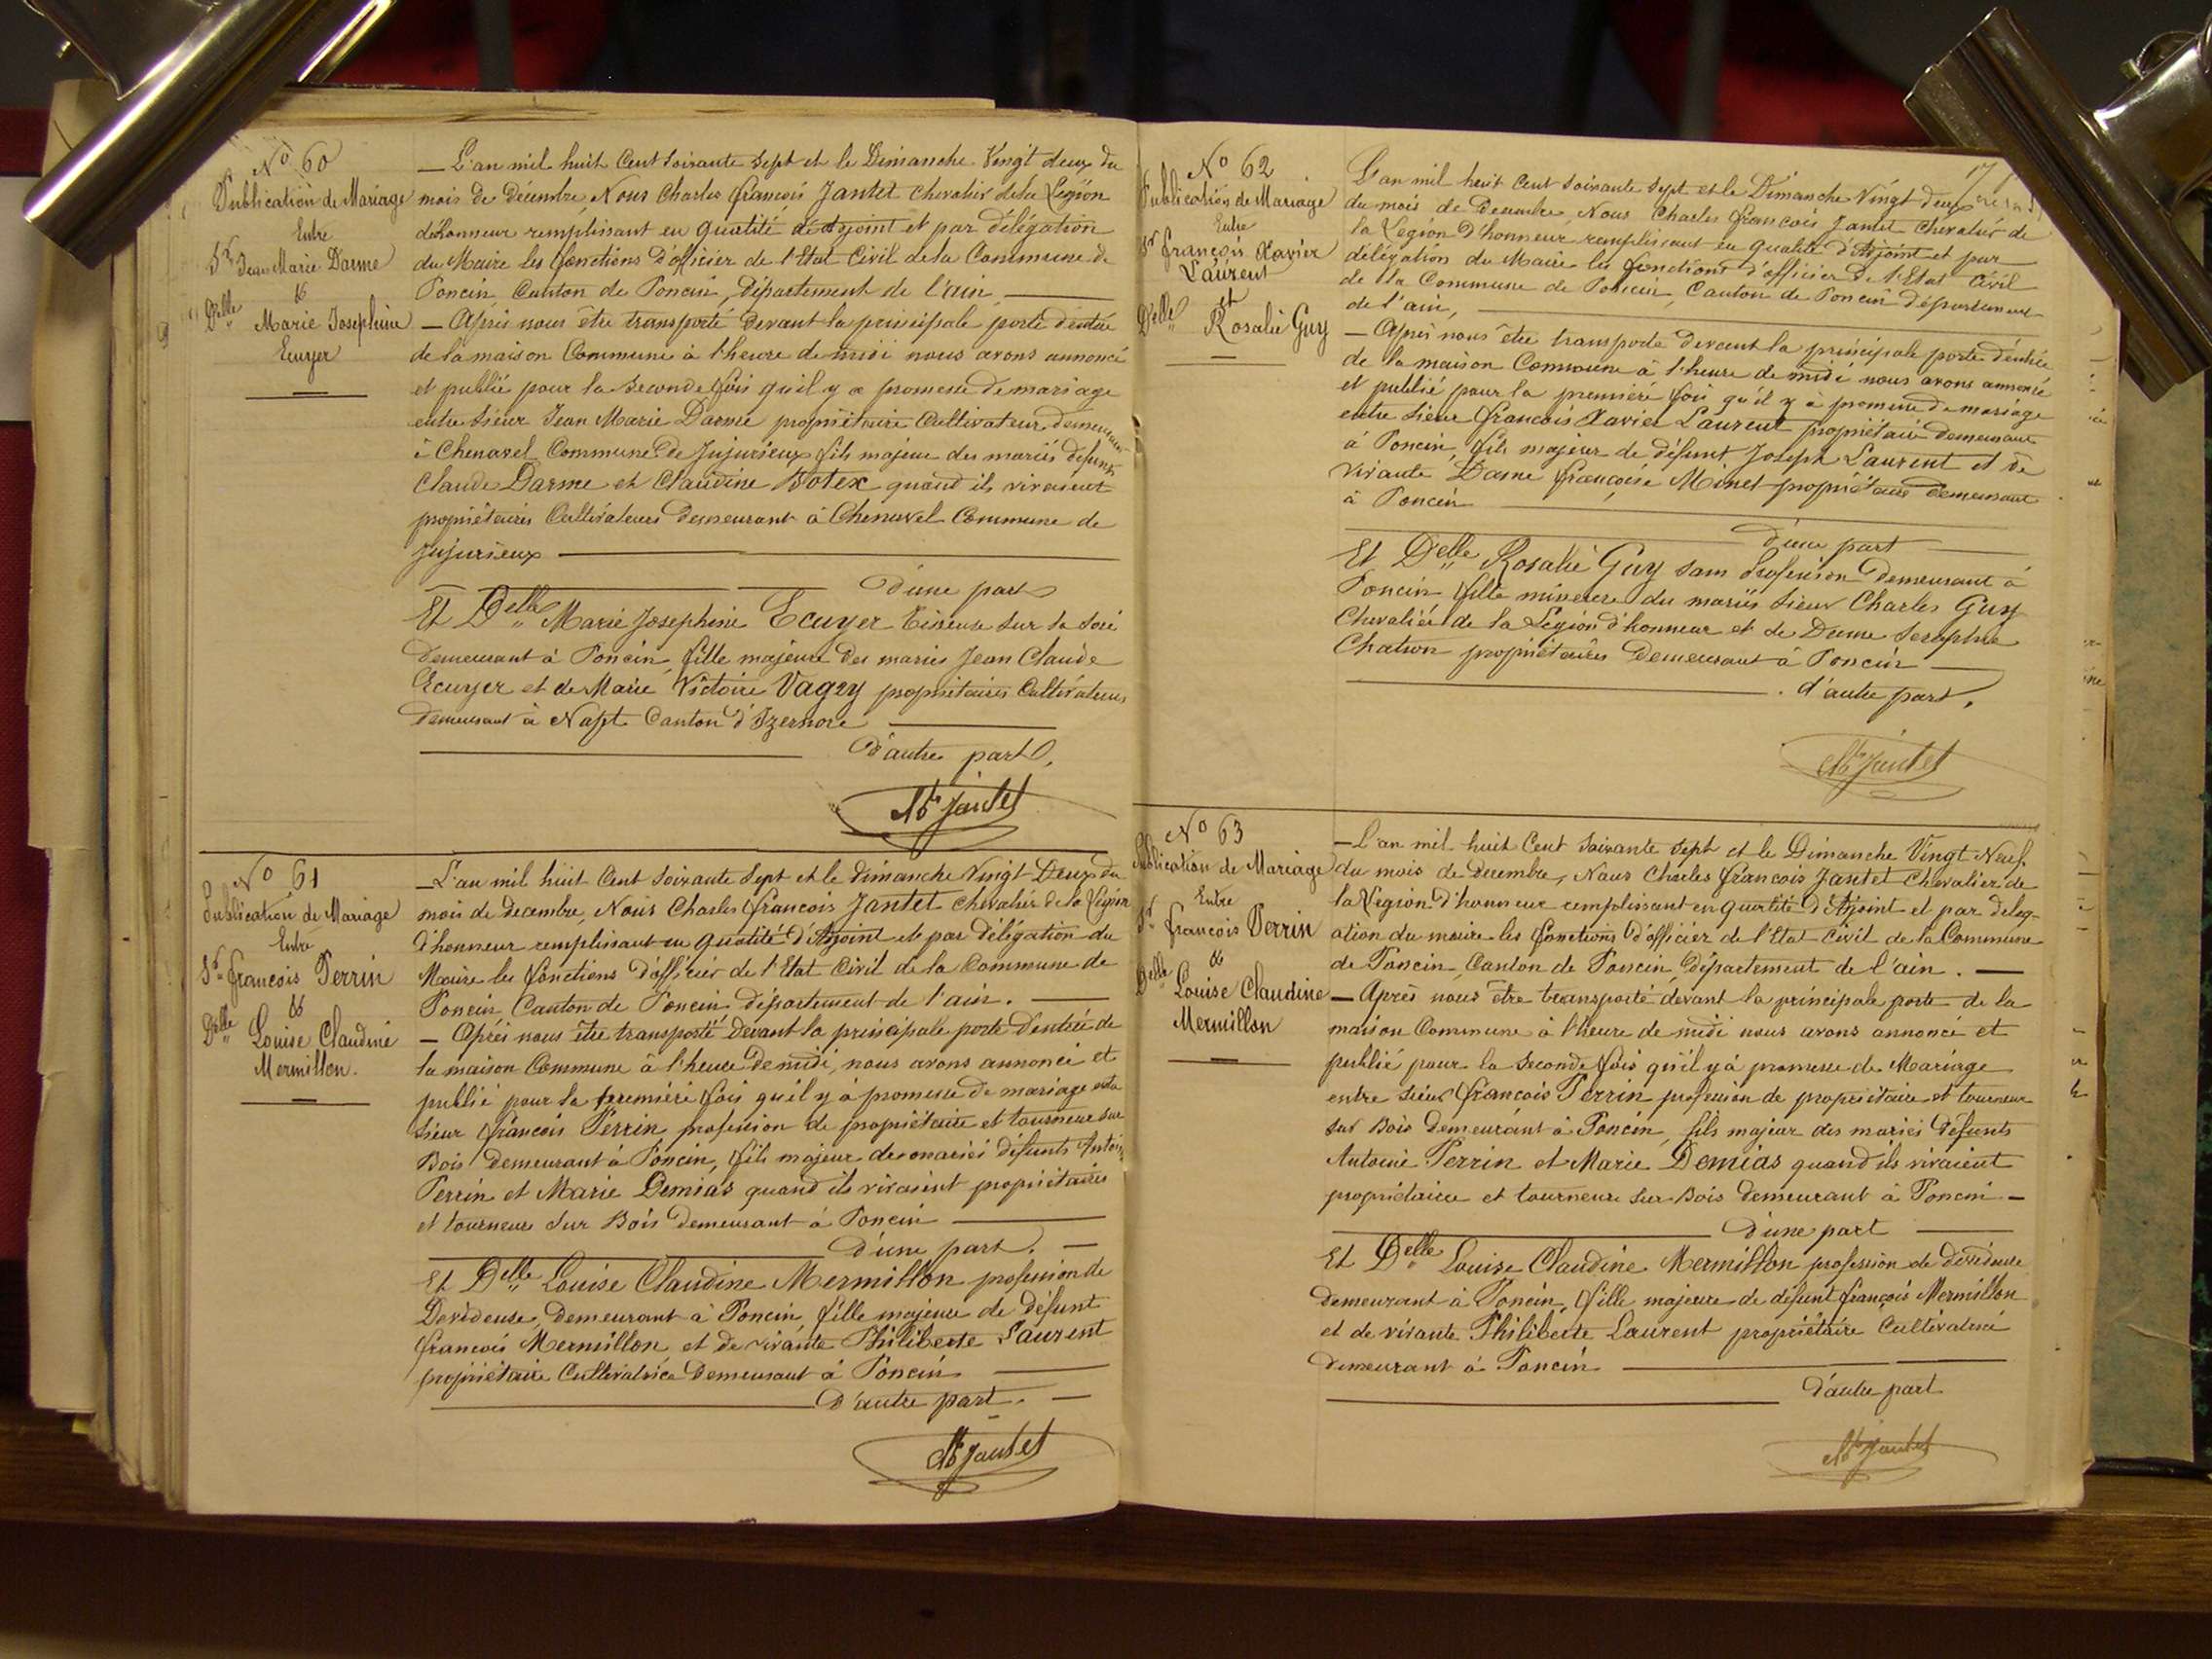 No 60
Publication de Mariage
Entre
Sr Jean Marie Darme
&
Delle Marie Josephine
Ecuyer
— L'an mil huit Cent Soixante Sept et le Dimanche Vingt deux du
mois de Décembre, Nous Charles françois Jantet Chevalier de la Légion
d'honneur remplissant en qualité d'Adjoint et par délégation
du Maire les fonctions d'officier de l'Etat Civil de la Commune de
Poncin, Canton de Poncin, Département de l'ain —
— Après nous être transporté Devant la principale porte d'entrée
de la maison Commune à l'heure de midi nous avons annoncé
et publié pour la Seconde fois qu'il y a promesse de mariage
entre Sieur Jean Marie Darme propriétaire Cultivateur demeurant
à Chenavel Commune de Jujurieux fils majeur des mariés défunts
Claude Darme et Claudine Botex quand ils vivaient
propriétaires Cultivateurs Demeurant à Chenavel Commune de
Jujurieux —
D'une part
Et Delle Marie Josephine Ecuyer Tisseuse Sur la Soie
Demeurant à Poncin, fille majeure des mariés Jean Claude
Ecuyer et de Marie Victoire Vagry propriétaires Cultivateurs
Demeurant à Napt Canton d'Izernore
D'autre part.
Ch Jantet
No 61
Publication de Mariage
Entre
Sr françois Perrin
&
Delle Louise Claudine
Mermillon.
— L'an mil huit Cent Soixante Sept et le dimanche Vingt Deux du
mois de Decembre, Nous Charles françois Jantet chevalier de la Légion
d'honneur remplissant en qualité d'Adjoint et par délégation du
Maire les fonctions d'officier de l'Etat Civil de la Commune de
Poncin Canton de Poncin département de l'ain. —
— Après nous être transporté Devant la principale porte D'entrée de
la maison Commune à l'heure de midi, nous avons annoncé et
publié pour la première fois qu'il y à promesse de mariage entre
Sieur françois Perrin profession de propriétaire et tourneur sur
Bois demeurant à Poncin, fils majeur des mariés défunts Antoine
Perrin et Marie Demias quand ils vivaient propriétaires
et tourneurs Sur Bois Demeurant à Poncin —
D'une part. —
Et Delle Louise Claudine Mermillon profession de
Devideuse, Demeurant à Poncin, fille majeure de défunt
françois Mermillon et de vivante Philiberte Laurent
propriétaire Cultivatrice Demeurant à Poncin —
D'autre part. —
Ch Jantet
17
No 62
Publication de Mariage
Entre
Sr françois Xavier
Laurent
et
Delle Rosalie Guy
L'an mil huit Cent Soixante Sept et le Dimanche Vingt Deux
du mois de Decembre, Nous Charles françois Jantet Chevalier de
la Légion D'honneur remplissant en qualité d'Adjoint et par
délégation du Maire les fonctions d'officier de l'Etat Civil
de la Commune de Poncin, Canton de Poncin département
de l'ain, —
— Après nous être transporté devant la principale porte d'entrée
de la maison Commune à l'heure de midi nous avons annoncé
et publié pour la première fois qu'il y à promesse de mariage
entre Sieur françois Xavier Laurent propriétaire demeurant
à Poncin, fils majeur de défunt Joseph Laurent et de
vivante Dame françoise Minet propriétaire Demeurant
à Poncin —
D'une part —
Et Delle Rosalie Guy Sans Profession Demeurant à
Poncin fille mineure du mariés Sieur Charles Guy
Chevalier de la Légion d'honneur et de Dame Seraphie
Chatron propriétaires Demeurant à Poncin —
. d'autre part,
Ch Jantet
No 63
Publication de Mariage
Entre
Sr françois Perrin
&
Delle Louise Claudine
Mermillon
— L'an mil huit Cent Soixante Sept et le Dimanche Vingt Neuf
du mois de Decembre, Nous Charles françois Jantet Chevalier de
la Légion D'honneur remplissant en qualité d'Adjoint et par deleg-
ation du maire les fonctions d'officier de l'Etat Civil de la Commune
de Poncin, Canton de Poncin, Département de l'ain. —
— Après nous être transporté devant la principale porte de la
maison Commune à l'heure de midi nous avons annoncé et
publié pour la Seconde fois qu'il y à promesse de Mariage
entre Sieur françois Perrin profession de propriétaire et tourneur
sur Bois Demeurant à Poncin, fils majeur des mariés Défunts
Antoine Perrin et Marie Demias quand ils vivaient
propriétaire et tourneur Sur Bois Demeurant à Poncin —
D'une part —
Et Delle Louise Claudine Mermillon profession de dévideuse
demeurant à Poncin, fille majeure de défunt françois Mermillon
et de vivante Philiberte Laurent propriétaire Cultivatrice
demeurant à Poncin —
D'autre part
Ch Jantet